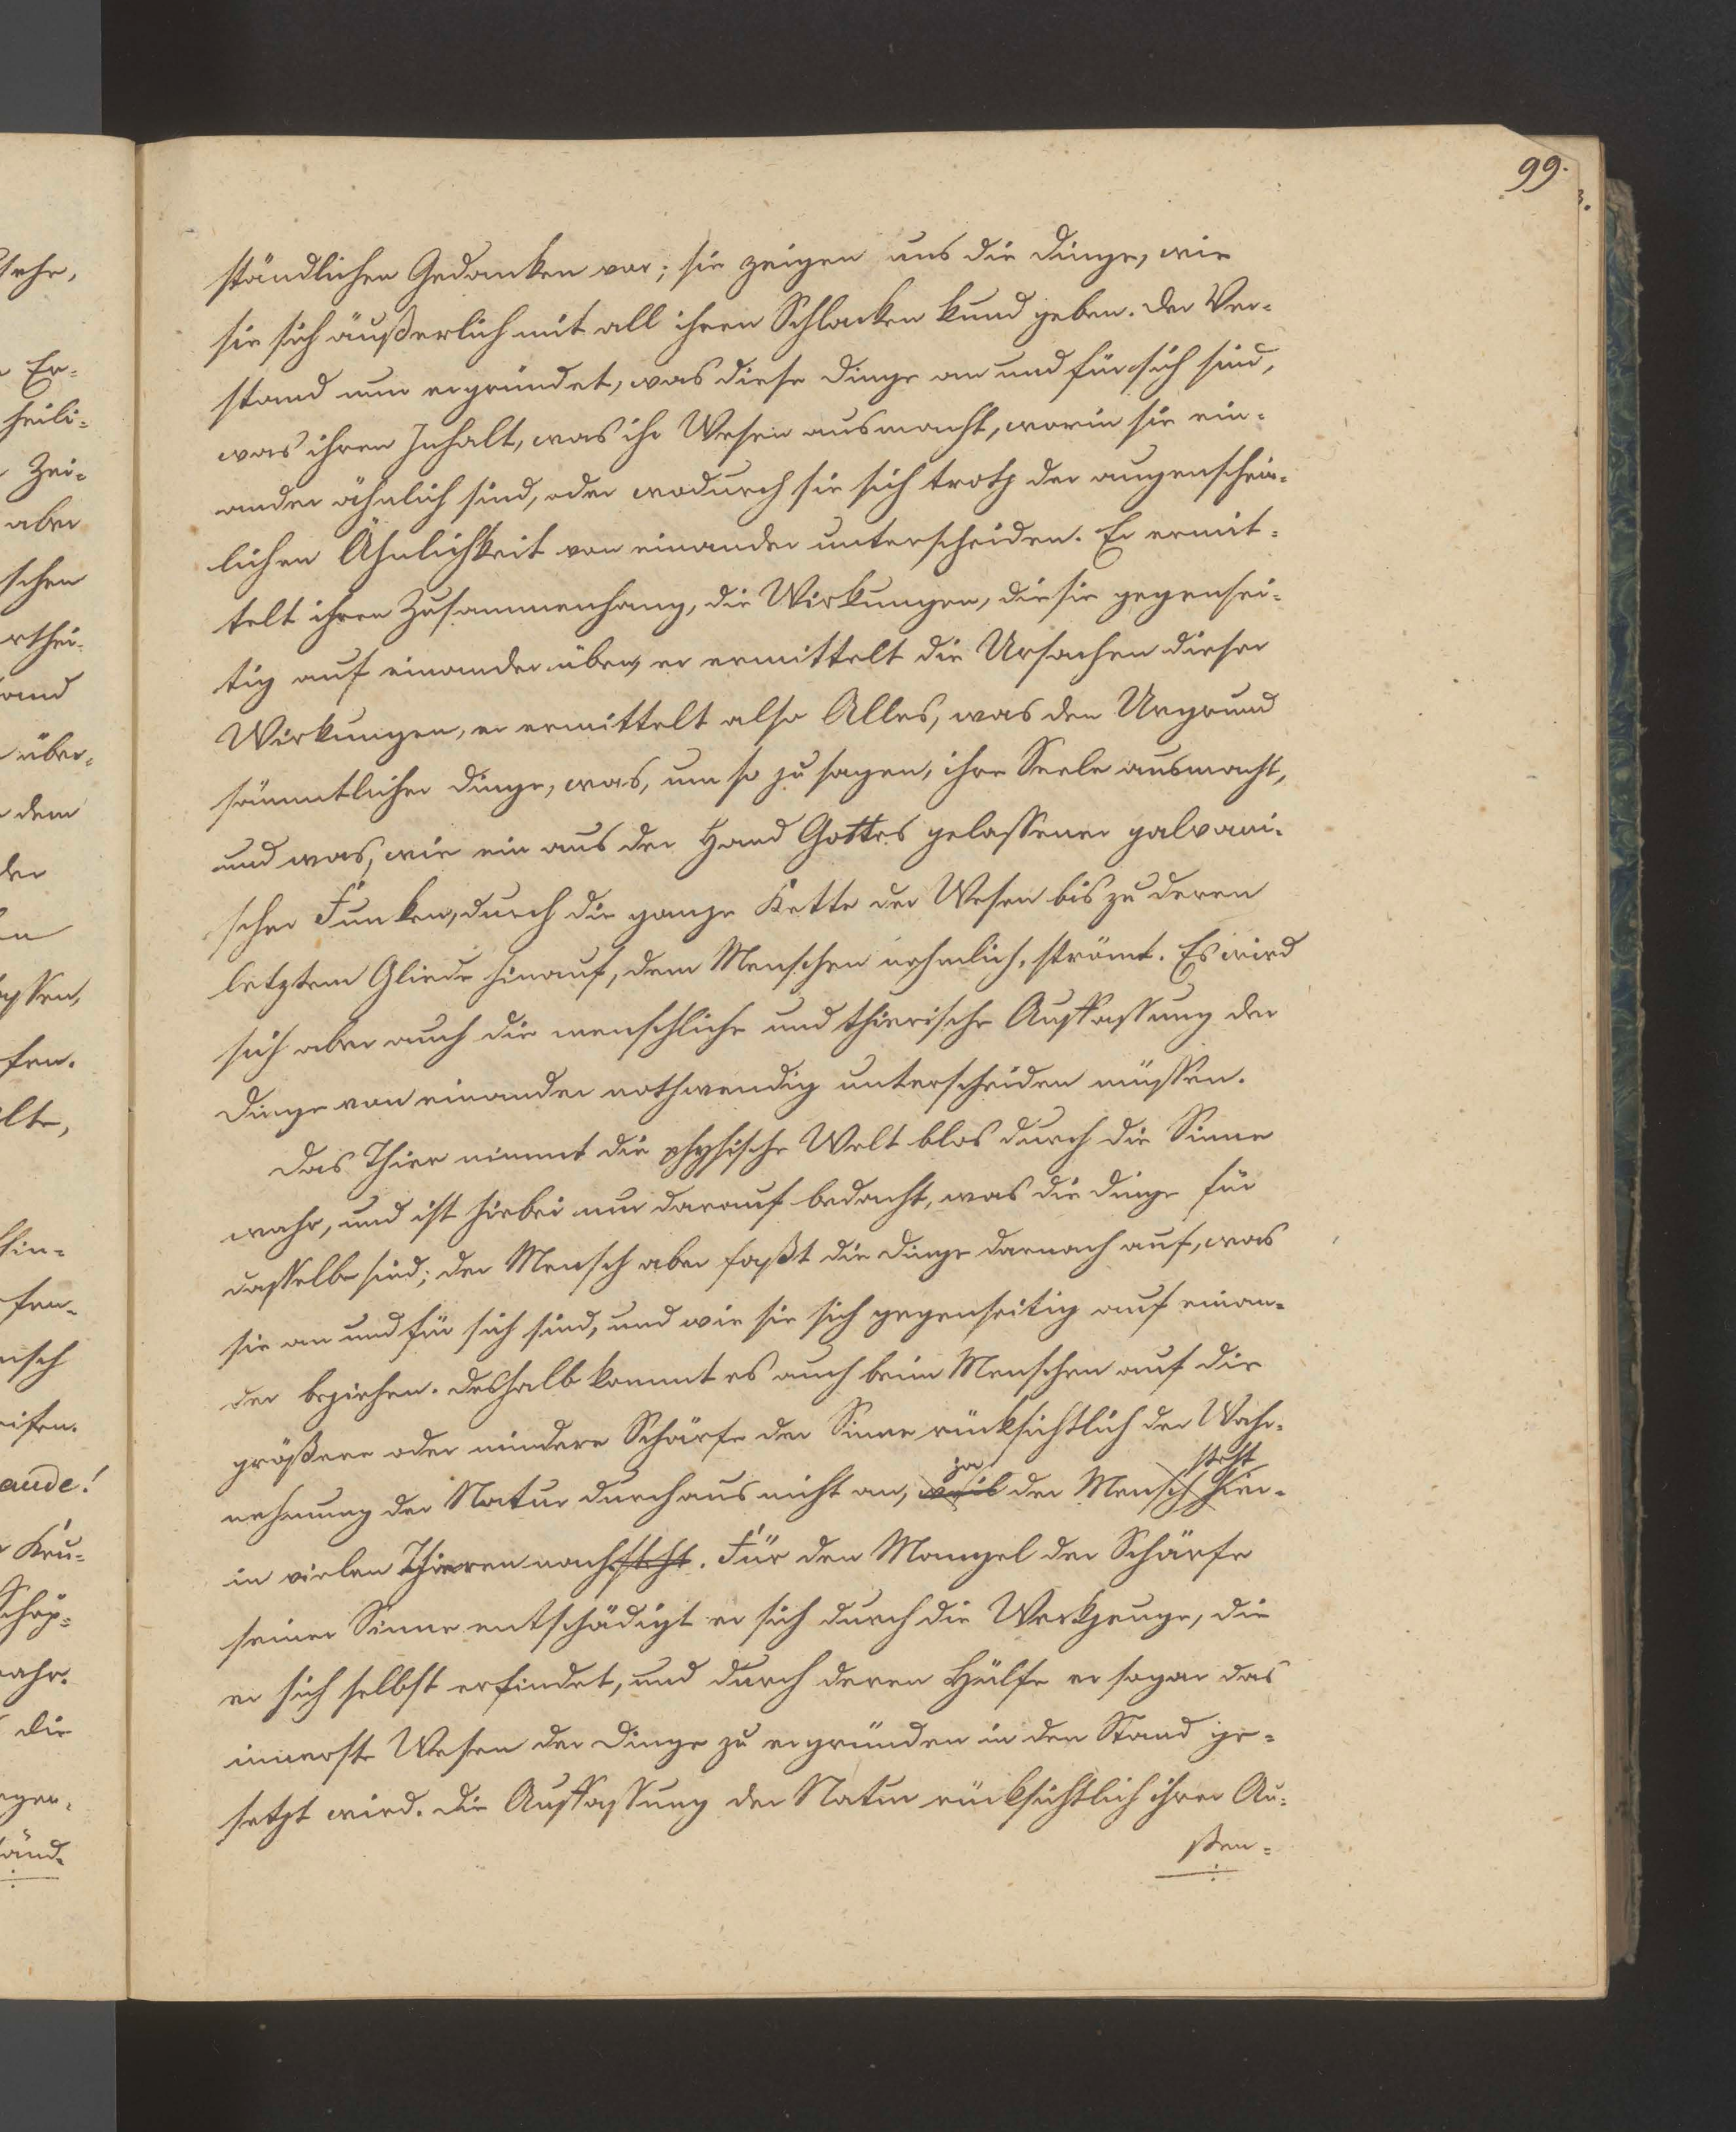 99.
ständlichen Gedanken vor; sie zeigen uns die Dinge, wie
sie sich äußerlich mit all ihren Schlacken kund geben. Der Ver-
stand nun ergründet, was diese Dinge an und für sich sind,
was ihren Inhalt, was ihr Wesen ausmacht, worin sie ein-
ander ähnlich sind, oder wodurch sie sich trotz der augenschein-
lichen Ähnlichkeit von einander unterscheiden. Er ermit-
telt ihren Zusammenhang, die Wirkungen, die sie gegensei-
tig auf einander üben, er ermittelt die Ursachen dieser
Wirkungen, er ermittelt also Alles, was den Urgrund
sämmtlicher Dinge, was, um so zu sagen, ihre Seele ausmacht,
und was, wie ein aus der Hand Gottes gelassener galvani-
scher Funken, durch die ganze Kette der Wesen bis zu deren
letztem Gliede hinauf, dem Menschen nehmlich, strömt. Es wird
sich aber auch die menschliche und thierische Auffassung der
Dinge von einander nothwendig unterscheiden müssen.
Das Thier nimmt die physische Welt blos durch die Sinne
wahr, und ist hierbei nur darauf bedacht, was die Dinge für
dasselbe sind; der Mensch aber faßt die Dinge darnach auf, was
sie an und für sich sind, und wie sie sich gegenseitig auf einan-
der beziehen. Deshalb kommt es auch beim Menschen auf die
größere oder mindere Schärfe der Sinne rücksichtlich der Wahr-
ja steht
nehmung der Natur durchaus nicht an, weil der Mensch hier-
in vielen Thieren nachsteht. Für den Mangel der Schärfe
seiner Sinne entschädigt er sich durch die Werkzeuge, die
er sich selbst erfindet, und durch deren Hülfe er sogar das
innerste Wesen der Dinge zu ergründen in den Stand ge-
setzt wird. Die Auffassung der Natur rücksichtlich ihrer Au-
ßen-